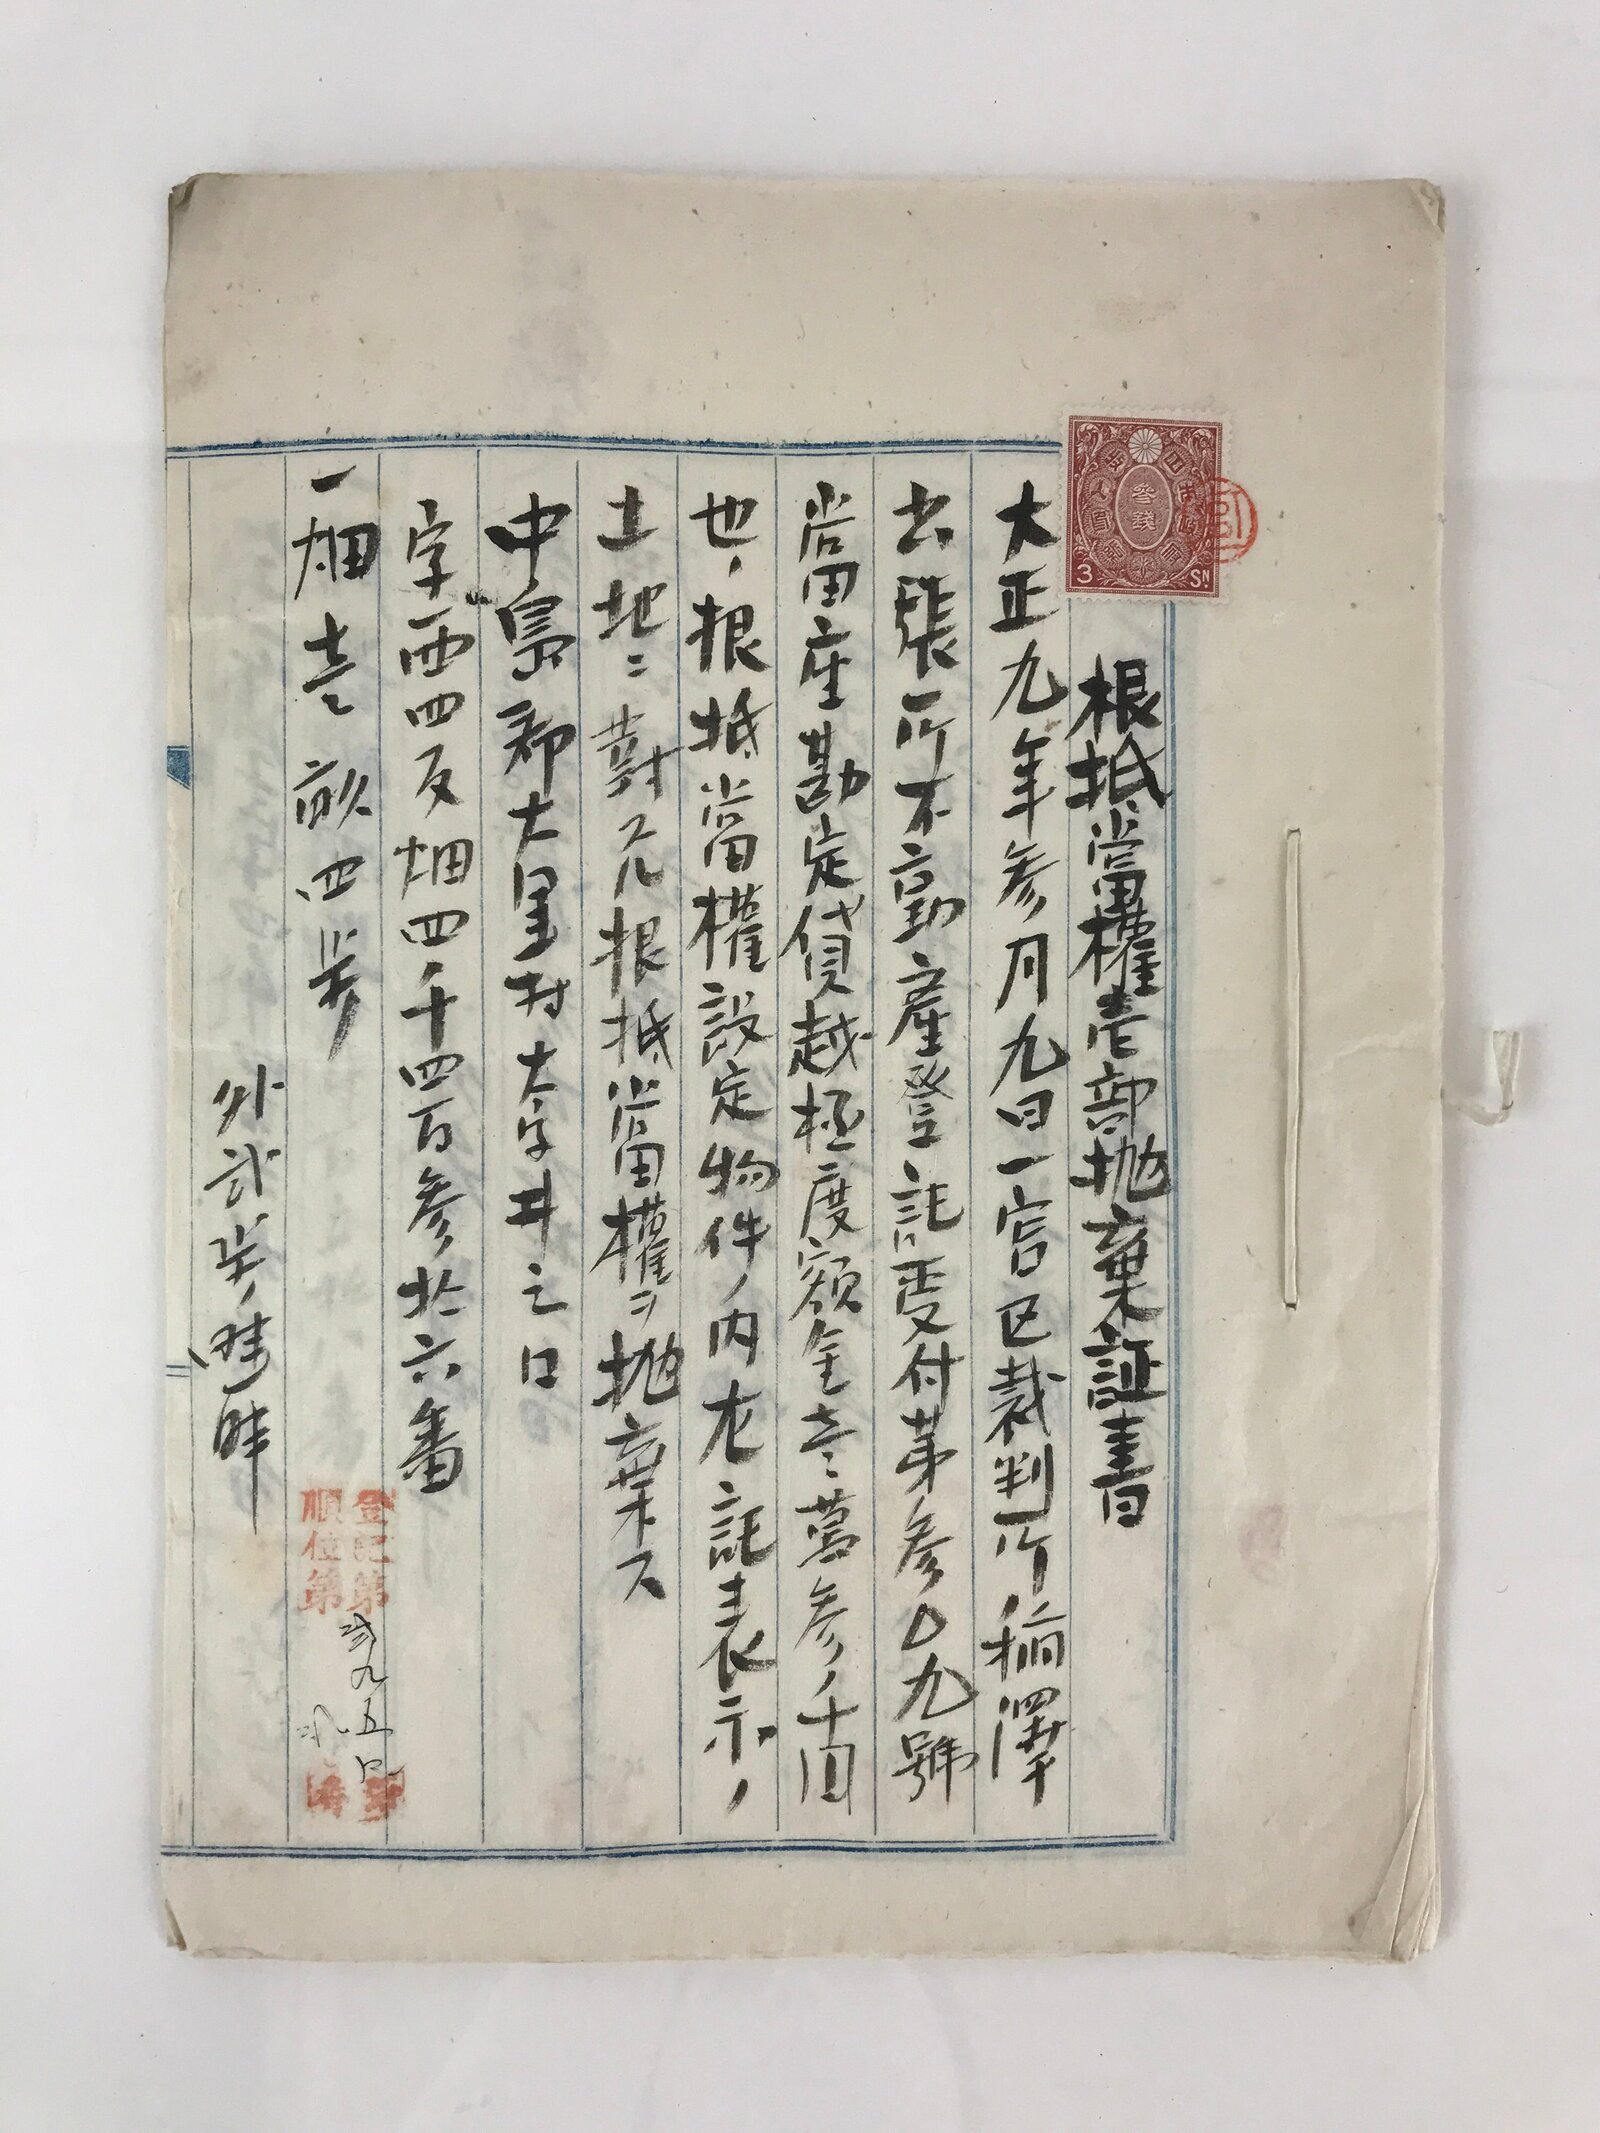 根抵當權壱部抛棄証書
大正九年参月九日一宮区裁判所稲澤
出張所不動産登記受付第参〇九號
當座勘定貸越極度額金壱萬参千圓
也ノ根抵當權設定物件ノ内左記表示ノ
土地ニ對スル根抵當權ヲ抛棄ス
中島郡大里村大字井之口
字西四反畑四千四百参拾六番
一畑壱畝四歩
外弐歩畦畔
登記第弐九五
順位第
3 SN